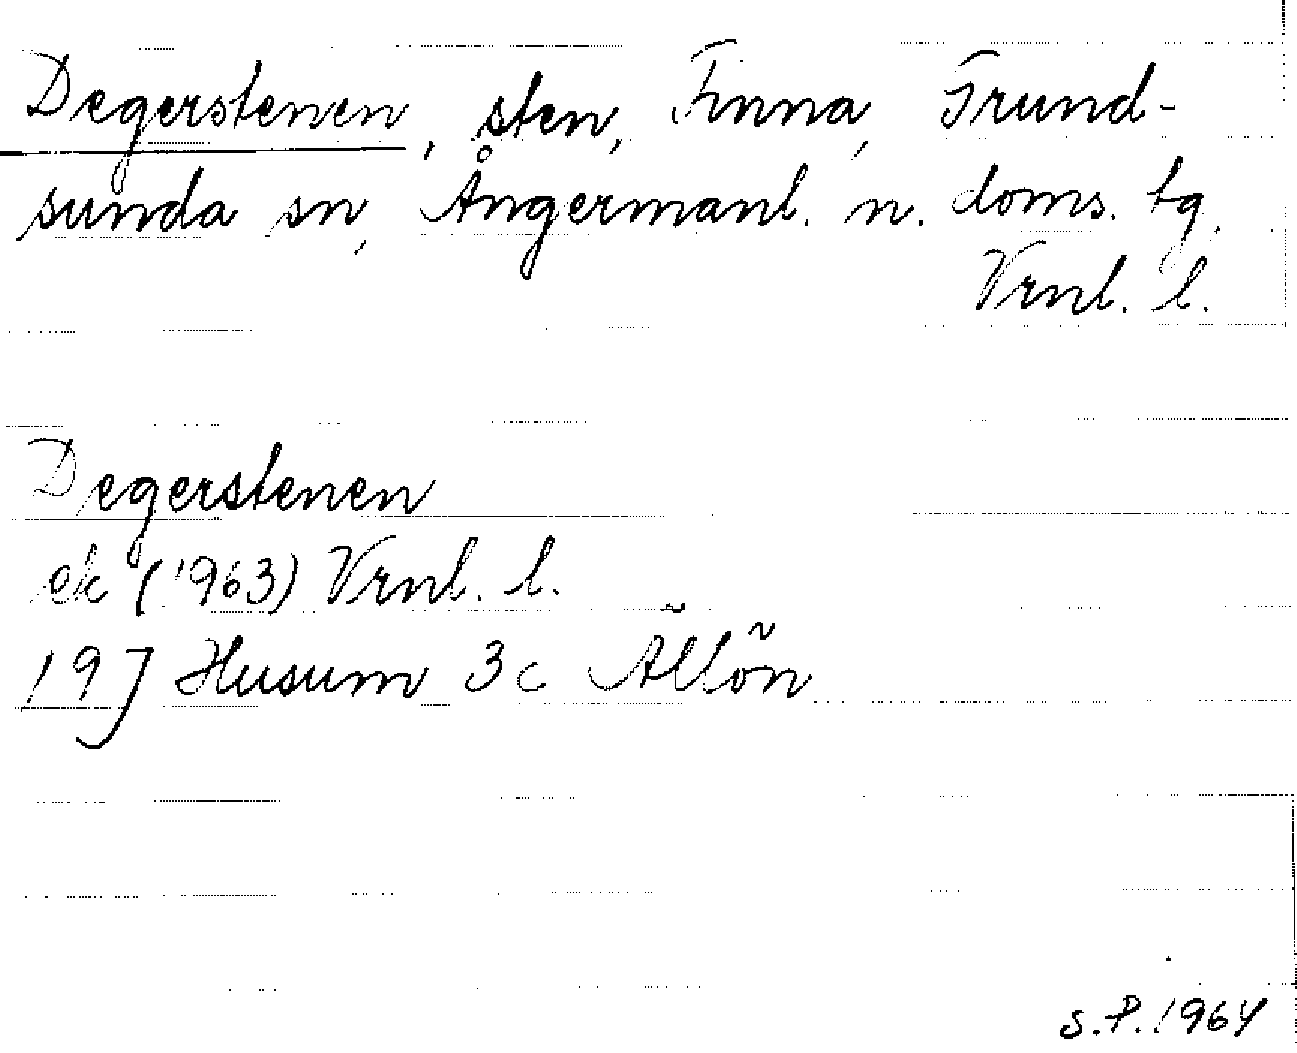 Degerstenen, sten, Finna, Grund-
sunda sn, Ångermanl. n. doms. tg.
Vrnl. l.
Degerstenen
ek (1963) Vrnl. l.
19J Husum 3c Ällön
S.P. 1964